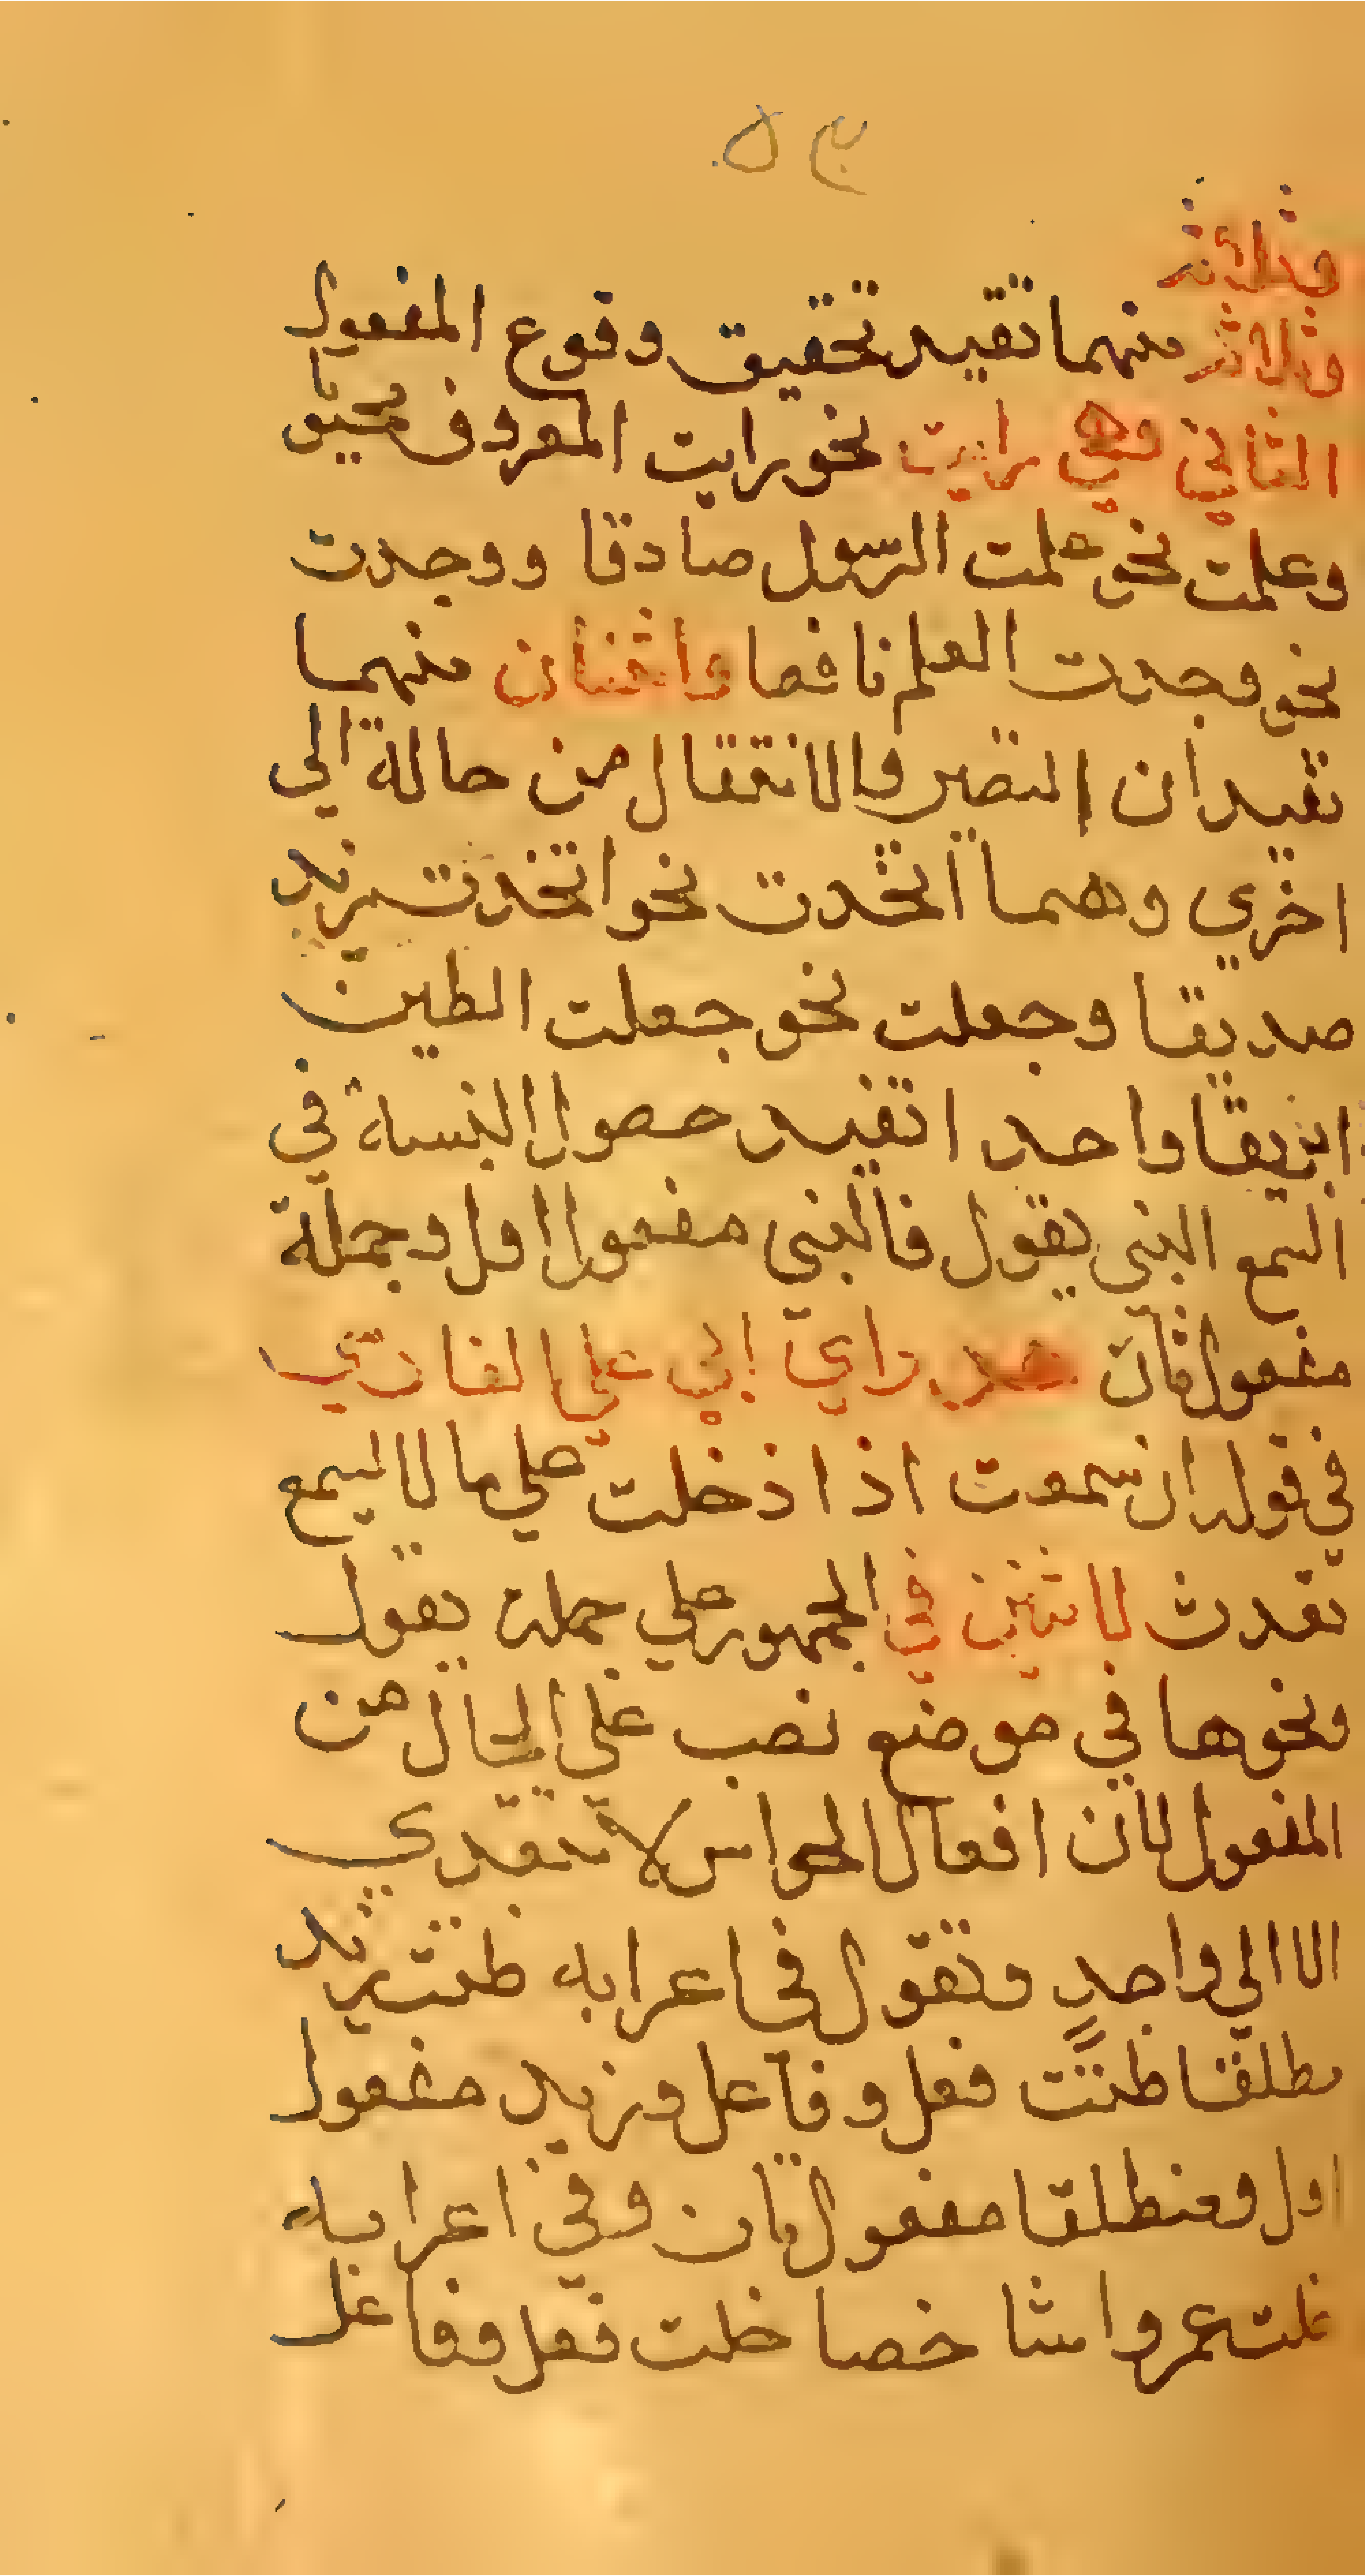 ٥٣
وثلاثة
وثلاثة منهما تفيد تحقيق وقوع المفعول
الثاني وهي رايت نحو رايت المعروف محبوبا
وعلمت نحو علمت الرسول صادقا ووجدت
نحو وجدت العلم نافعا واثنان منهما
تفيد ان التصير والانتقال من حالة الي
اخري وهما اتخدت نحو اتخدت زيد
صديقا وجعلت نحو جعلت الطين
ابريقا واحد اتفيد حصول النسبة في
السمع النبي يقول فالنبي مفعول اول وجملة
مفعول ثان راي ابي علي الفارسي
في قوله ان سمعت اذا ادخلت علي ما لا يسمع
تعدت لاثنين في الجمهور علي جملة يقول
ونحوها في موضع نصب علي الحال من
المفعول لان افعال الحواس لا تتعدي
الا الي واحد وتقول في اعرابه ظننت زيد
مطلقا ظننت فعل وفاعل وزيد مفعول
اول ومنطلقا مفعول ثان وفي اعرابه
خلت عمروا شاخصا خلت فعل وفاعل